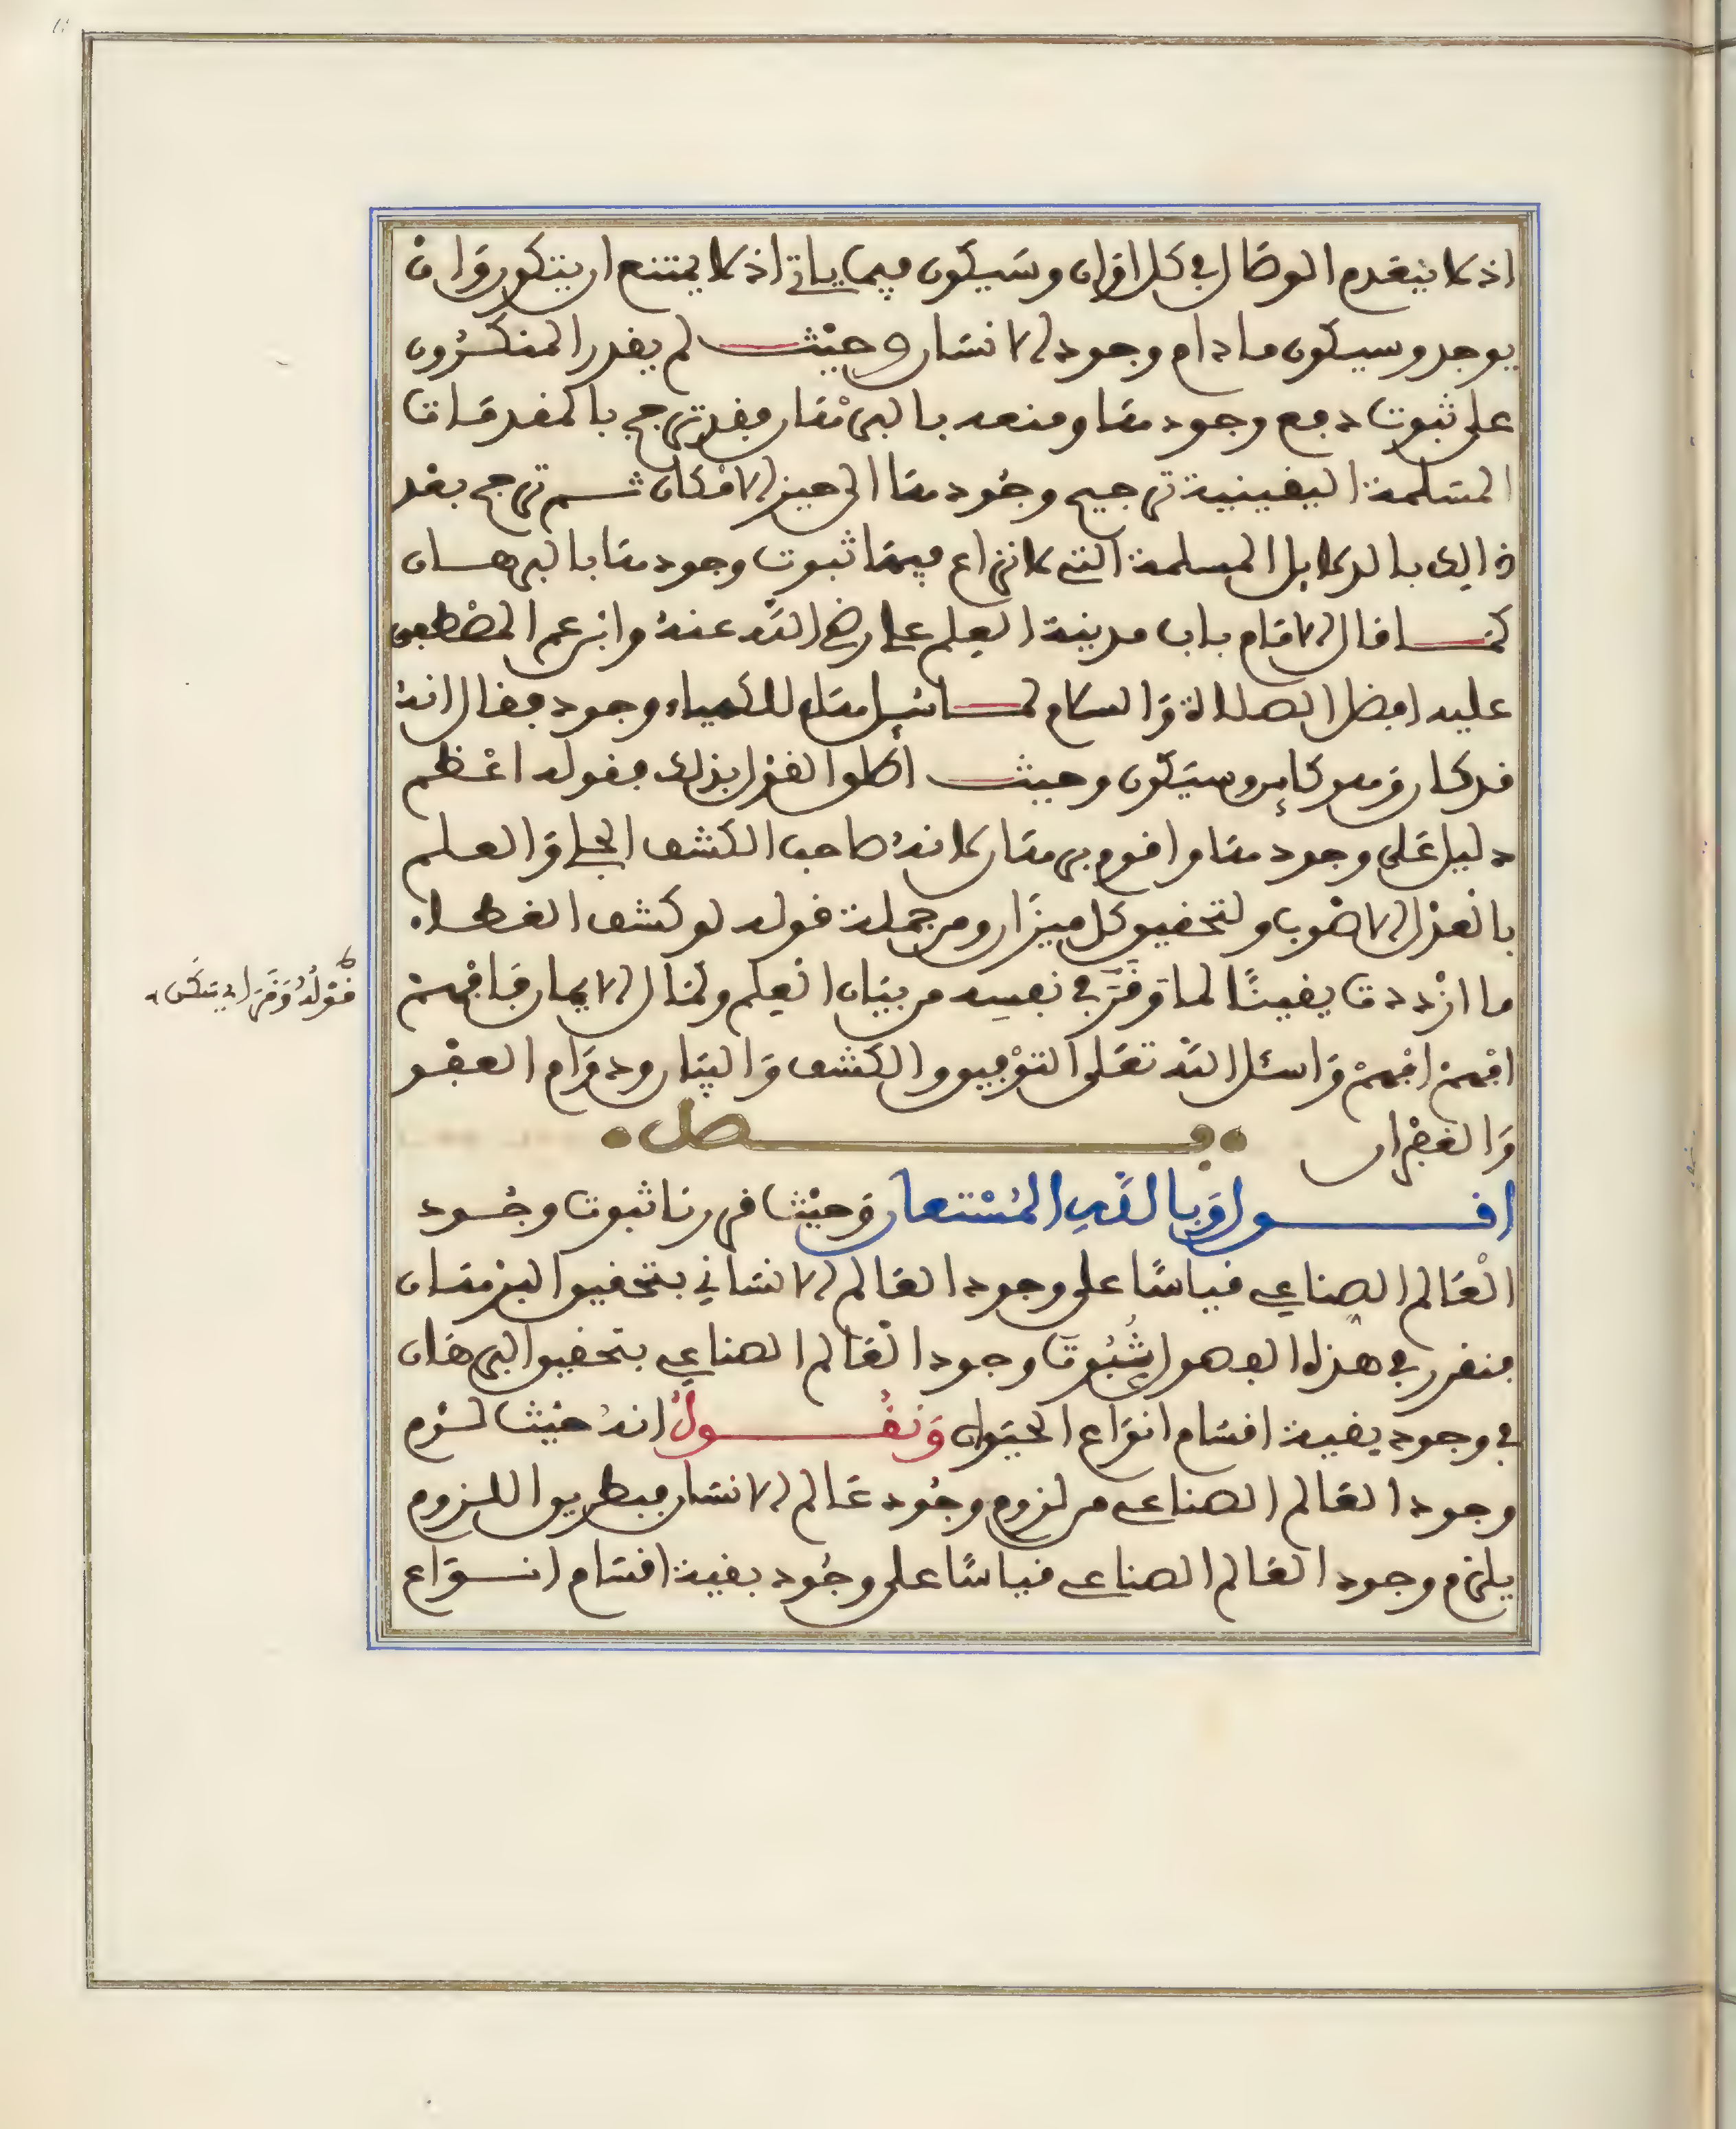 اذ لا ينعدم الوصال في كل اوان وسيكون فيما ياتي اذ لا يمتنع ان يتكون وان
يوجد وسيكون ما دام وجود الانسان وحيث لم يقدر المنكرون
على ثبوت دفع وجودها ومنعه بالبرهان فقد ترجح بالمقدمات
المسلمة اليقينية ترجيح وجودها الى حيز الامكان ثم ترجح بعد
ذالك بالدلايل المسلمة التي لا نزاع فيها ثبوت وجودها بالبرهان
كما قال الامام باب مدينة العلم علي رضي الله عنه وابن عم المصطفى
عليه افضل الصلاة والسلام لما سئل هل للكيمياء وجود فقال انه
قد كان وهو كاين وسيكون وحيث اطلق القول بذلك فقوله اعظم
دليل على وجودها واقوم برهان لانه صاحب الكشف الجلي والعلم
بالعدل الاصوب ولتحقيق كل ميزان ومن جملة قوله لو كشف الغطاء
ما ازددت يقينا لما وقر في نفسه من بيان العلم وكمال الايمان فافهمن
افهمن افهمن واسئل الله تعلى التوفيق والكشف والبيان ودوام العفو
والغفران فصل
اقول وبالله المستعان وحيث قررنا ثبوت وجود
العالم الصناعي قياسا على وجود العالم الانساني بتحقيق البرهان
فنقرر في هذا الفصل ثبوت وجود العالم الصناعي بتحقيق البرهان
في وجود بقية اقسام انواع الحيوان ونقول انه حيث لزم
وجود العالم الصناعي من لزوم وجود عالم الانسان فبطريق اللزوم
يلزم وجود العالم الصناعي قياسا على وجود بقية اقسام انواع
قوله وقر اي سكن